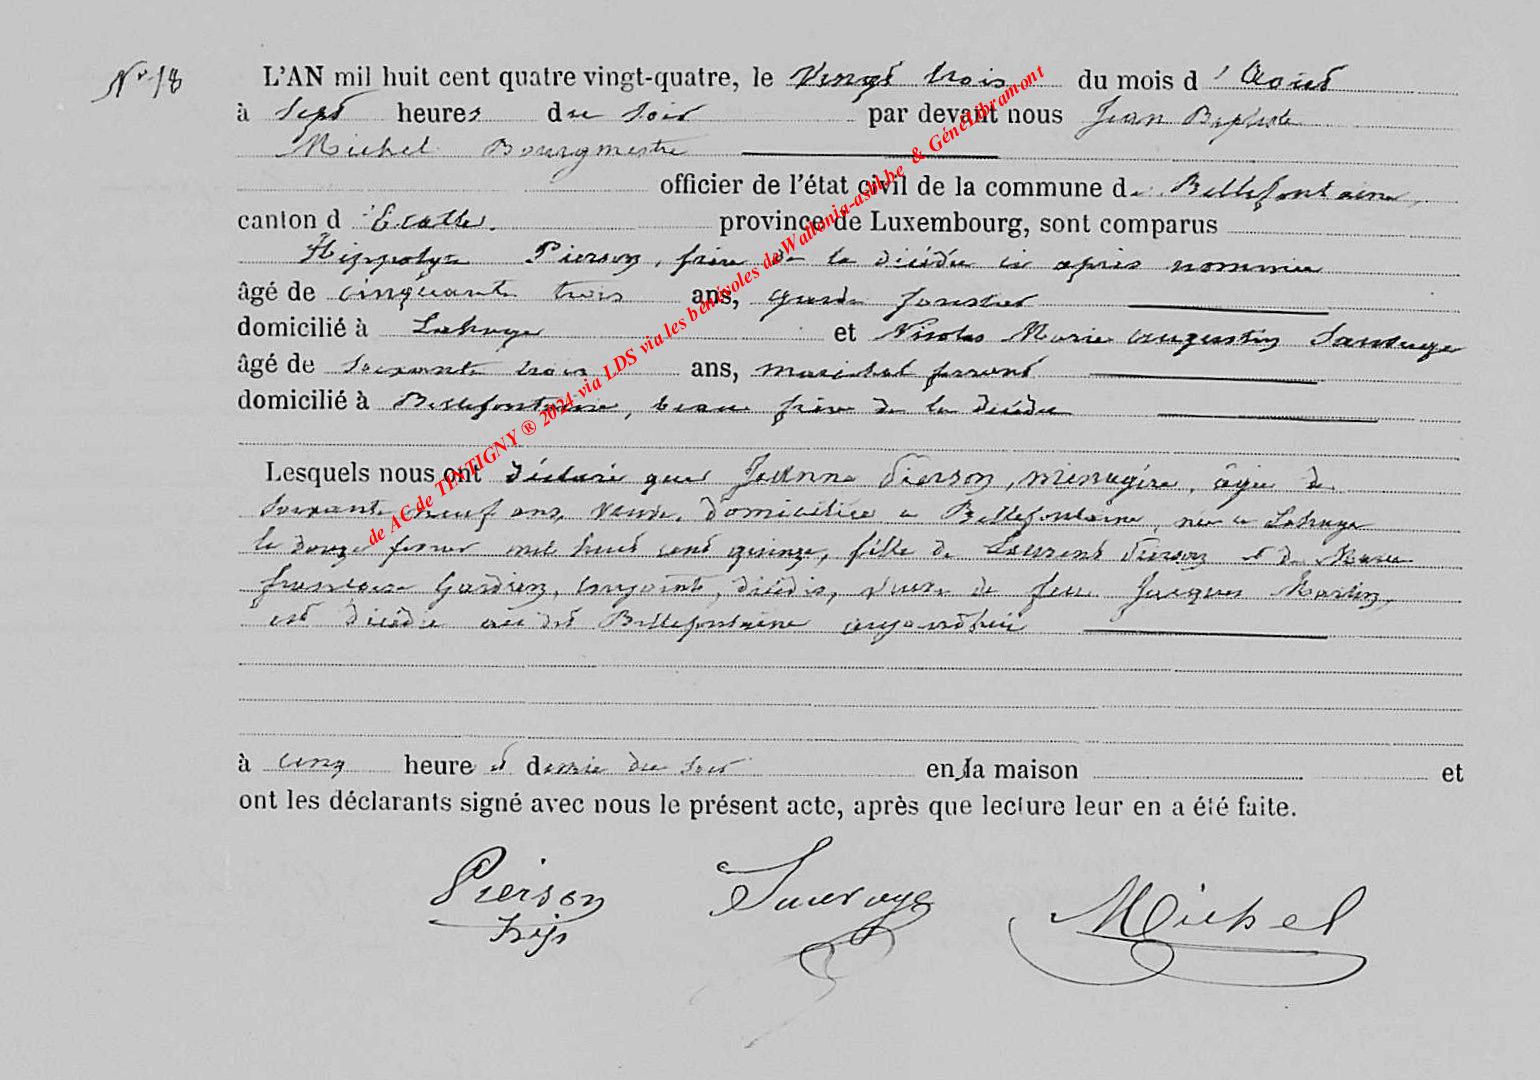 N° 18
L'AN mil huit cent quatre vingt-quatre, le Vingt trois du mois d'Août
à Sept heures du Soir par devant nous Jean Baptiste
Michel Bourgmestre
officier de l'état civil de la commune de Bellefontaine,
canton d'Etalle. province de Luxembourg, sont comparus
Hippolyte Pierson, frère de la décédée ci après nommée
âgé de cinquante trois ans, garde forestier
domicilié à Lahage et Nicolas Marie Augustin Sauvage
âgé de Soixante trois ans, maréchal ferrant
domicilié à Bellefontaine, beau frère de la décédée
Lesquels nous ont déclaré que Jeanne Pierson, ménagère, âgée de
Soixante neuf ans, veuve, domiciliée à Bellefontaine, née à Lahage
le douze février mil huit cent quinze, fille de Laurent Pierson et de Marie
françoise Gardien, conjoints, décédés, veuve de feu Jacques Martin,
est décédée au dit Bellefontaine aujourd'hui
à cinq heure et demie du soir en la maison et
ont les déclarants signé avec nous le présent acte, après que lecture leur en a été faite.
Pierson Sauvage Michel
de AC de TINTIGNY ® 2024 via LDS via les bénévoles de Wallonia-asbl.be & GéneLibramont